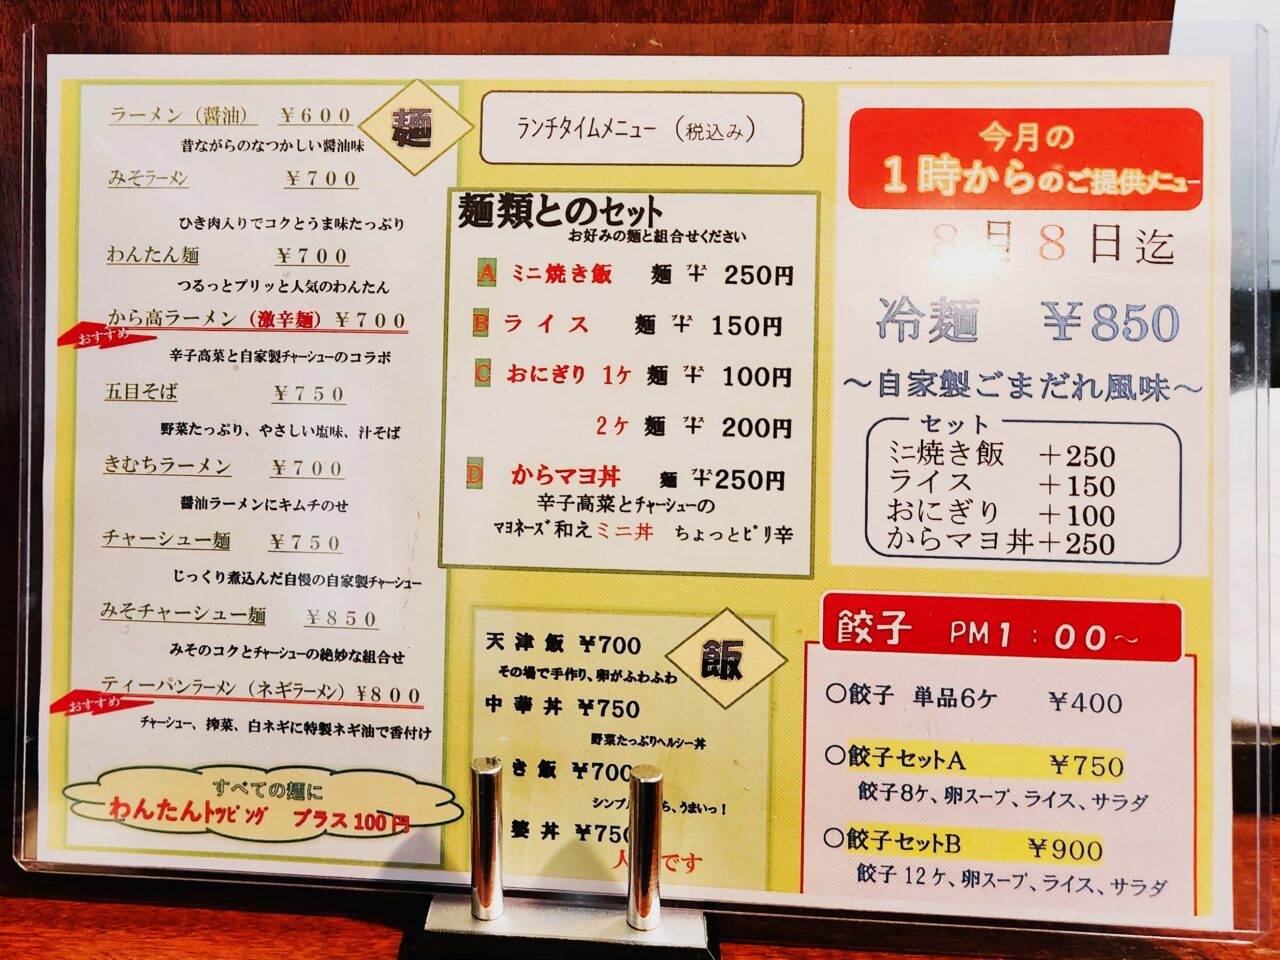 ラーメン（醤油） ￥600
昔ながらのなつかしい醤油味
みそラーメン ￥700
ひき肉入りでコクとうま味たっぷり
わんたん麺 ￥700
つるっとプリッと人気のわんたん
から高ラーメン（激辛麺）￥700
おすすめ
辛子高菜と自家製チャーシューのコラボ
五目そば ￥750
野菜たっぷり、やさしい塩味、汁そば
きむちラーメン ￥700
醤油ラーメンにキムチのせ
チャーシュー麺 ￥750
じっくり煮込んだ自慢の自家製チャーシュー
みそチャーシュー麺 ￥850
みそのコクとチャーシューの絶妙な組合せ
ティーパンラーメン（ネギラーメン）￥800
おすすめ
チャーシュー、搾菜、白ネギに特製ネギ油で香付け
すべての麺に
わんたんトッピング プラス100円
麺
ランチタイムメニュー（税込み）
麺類とのセット
お好みの麺と組合せください
A ミニ焼き飯 麺 プラス＋ 250円
B ライス 麺 プラス＋ 150円
C おにぎり 1ケ 麺 プラス＋ 100円
2ケ 麺 プラス＋ 200円
D からマヨ丼 麺 プラス＋250円
辛子高菜とチャーシューの
マヨネーズ和えミニ丼 ちょっとピリ辛
飯
天津飯 ￥700
その場で手作り、卵がふわふわ
中華丼 ￥750
野菜たっぷりヘルシー丼
き飯 ￥700
シンプル ち、うまいっ！
婆丼 ￥750
人 です
今月の
1時からのご提供メニュー
8月8日迄
冷麺 ￥850
～自家製ごまだれ風味～
セット
ミニ焼き飯 ＋250
ライス ＋150
おにぎり ＋100
からマヨ丼＋250
餃子 PM1：00～
○餃子 単品6ケ ￥400
○餃子セットA ￥750
餃子8ケ、卵スープ、ライス、サラダ
○餃子セットB ￥900
餃子12ケ、卵スープ、ライス、サラダ